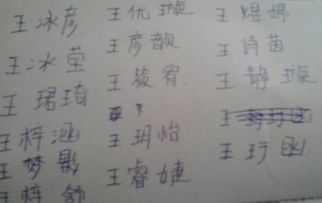 王冰彦
王冰莹
王珺琦
王梓涵
王梦影
王梓舒
王优璇
王彦歆
王筱宥
王玥怡
王睿婕
王煜婷
王诗茵
王静璇
王玙函